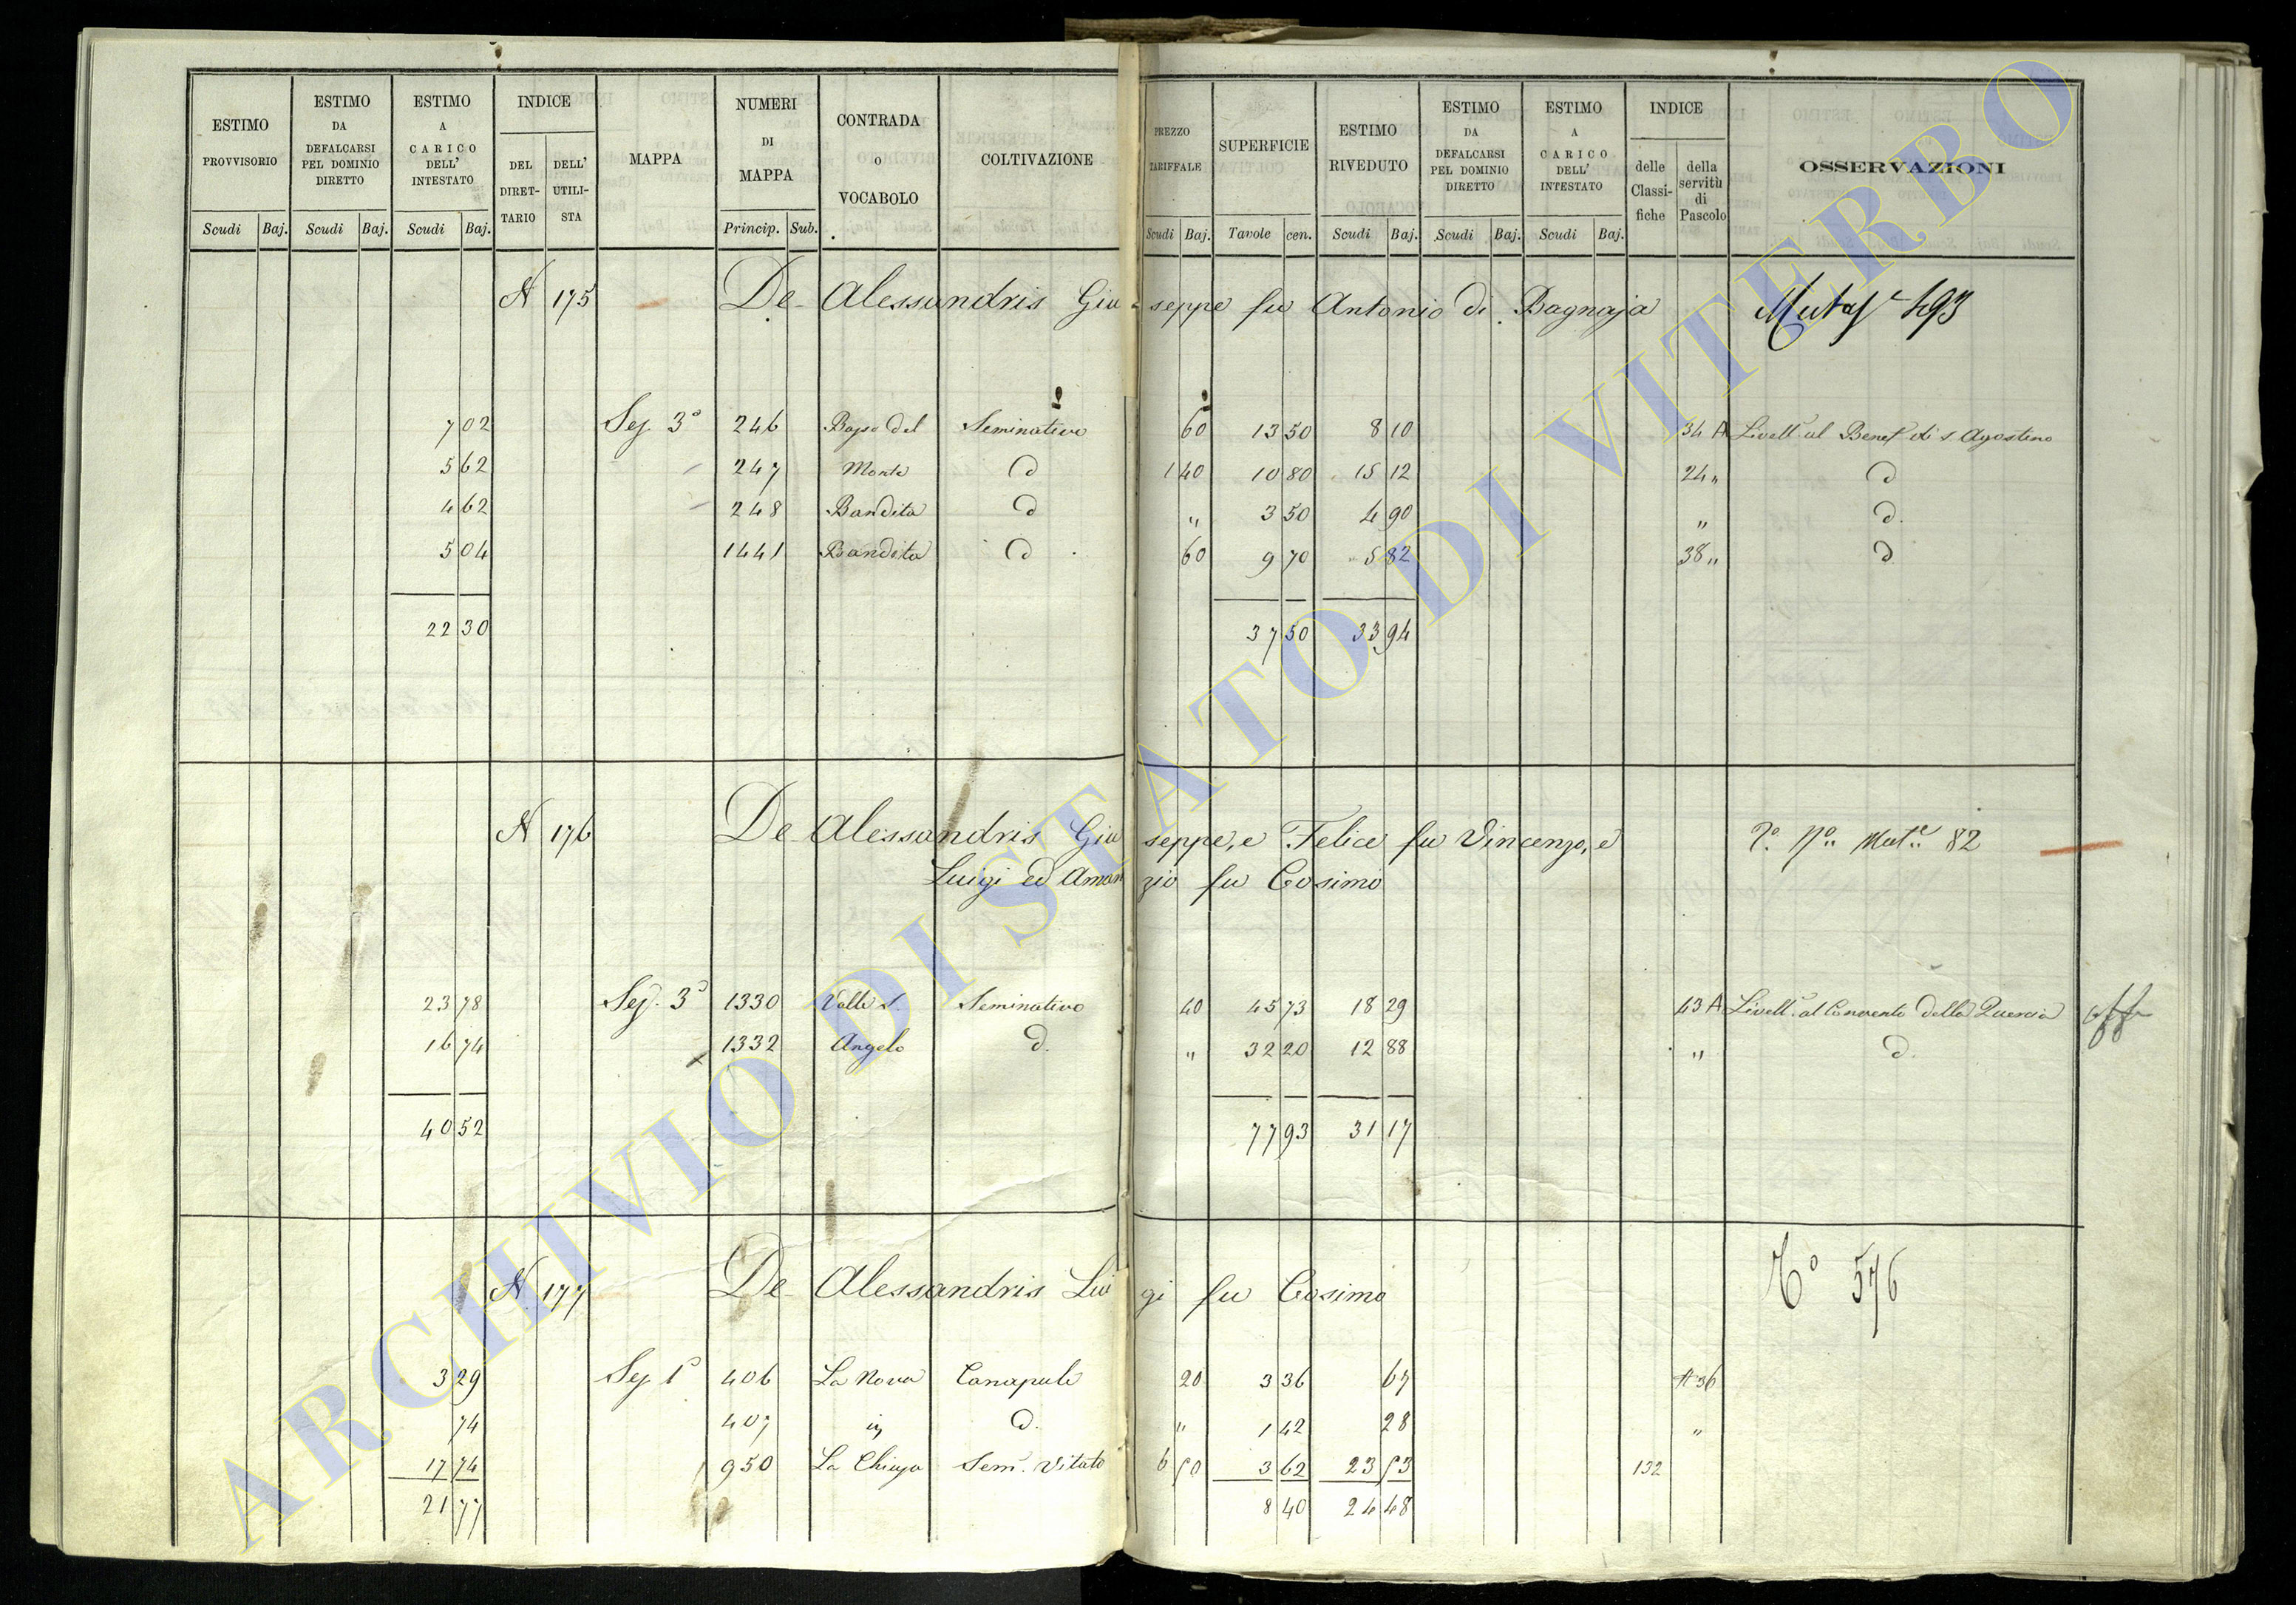 ESTIMO PROVVISORIO | ESTIMO DA DEFALCARSI PEL DOMINIO DIRETTO | ESTIMO A CARICO DELL' INTESTATO | INDICE | MAPPA | NUMERI DI MAPPA | CONTRADA O VOCABOLO | COLTIVAZIONE | PREZZO TARIFFALE | SUPERFICIE | ESTIMO RIVEDUTO | ESTIMO DA DEFALCARSI PEL DOMINIO DIRETTO | ESTIMO A CARICO DELL' INTESTATO | INDICE | OSSERVAZIONI
DEL DIRET-TARIO | DELL' UTILI-STA | delle Classi-fiche | della servitù di Pascolo
Scudi | Baj. | Scudi | Baj. | Scudi | Baj. | Princip. | Sub. | Scudi | Baj. | Tavole | cen. | Scudi | Baj. | Scudi | Baj. | Scudi | Baj.
N 175 De Alessandris Giuseppe fu Antonio di Bagnaja 493
7 02 Sez. 3ª 246 del Seminativo 60 13 50 8 10 34 A Livellº al Benefº di S. Agostino
5 62 247 Monte d 1 40 10 80 15 12 24 " d
4 62 248 Bandita d " 3 50 4 90 " d.
5 04 1441 Bandita d 60 9 70 5 82 38 " d
22 30 37 50 33 94
N 176 De Alessandris Giuseppe, e Felice fu Vincenzo, e Mutº 82
Luigi ed Amanzio fu Cosimo
23 78 Sez. 3ª 1330 Valle S. Seminativo 40 45 73 18 29 43 A Livellº al Convento della Quercia
16 74 1332 Angelo d. " 32 20 12 88 " d.
40 52 77 93 31 17
N. 177 De Alessandris Luigi fu Cosimo 576
3 29 Sez 1ª 406 La Nova Canapule 20 3 36 67 A 36
74 407 d. " 1 42 28 "
17 74 950 La Sem. Vitato 6 50 3 62 23 53 132
21 77 8 40 24 48
ARCHIVIO DI STATO DI VITERBO